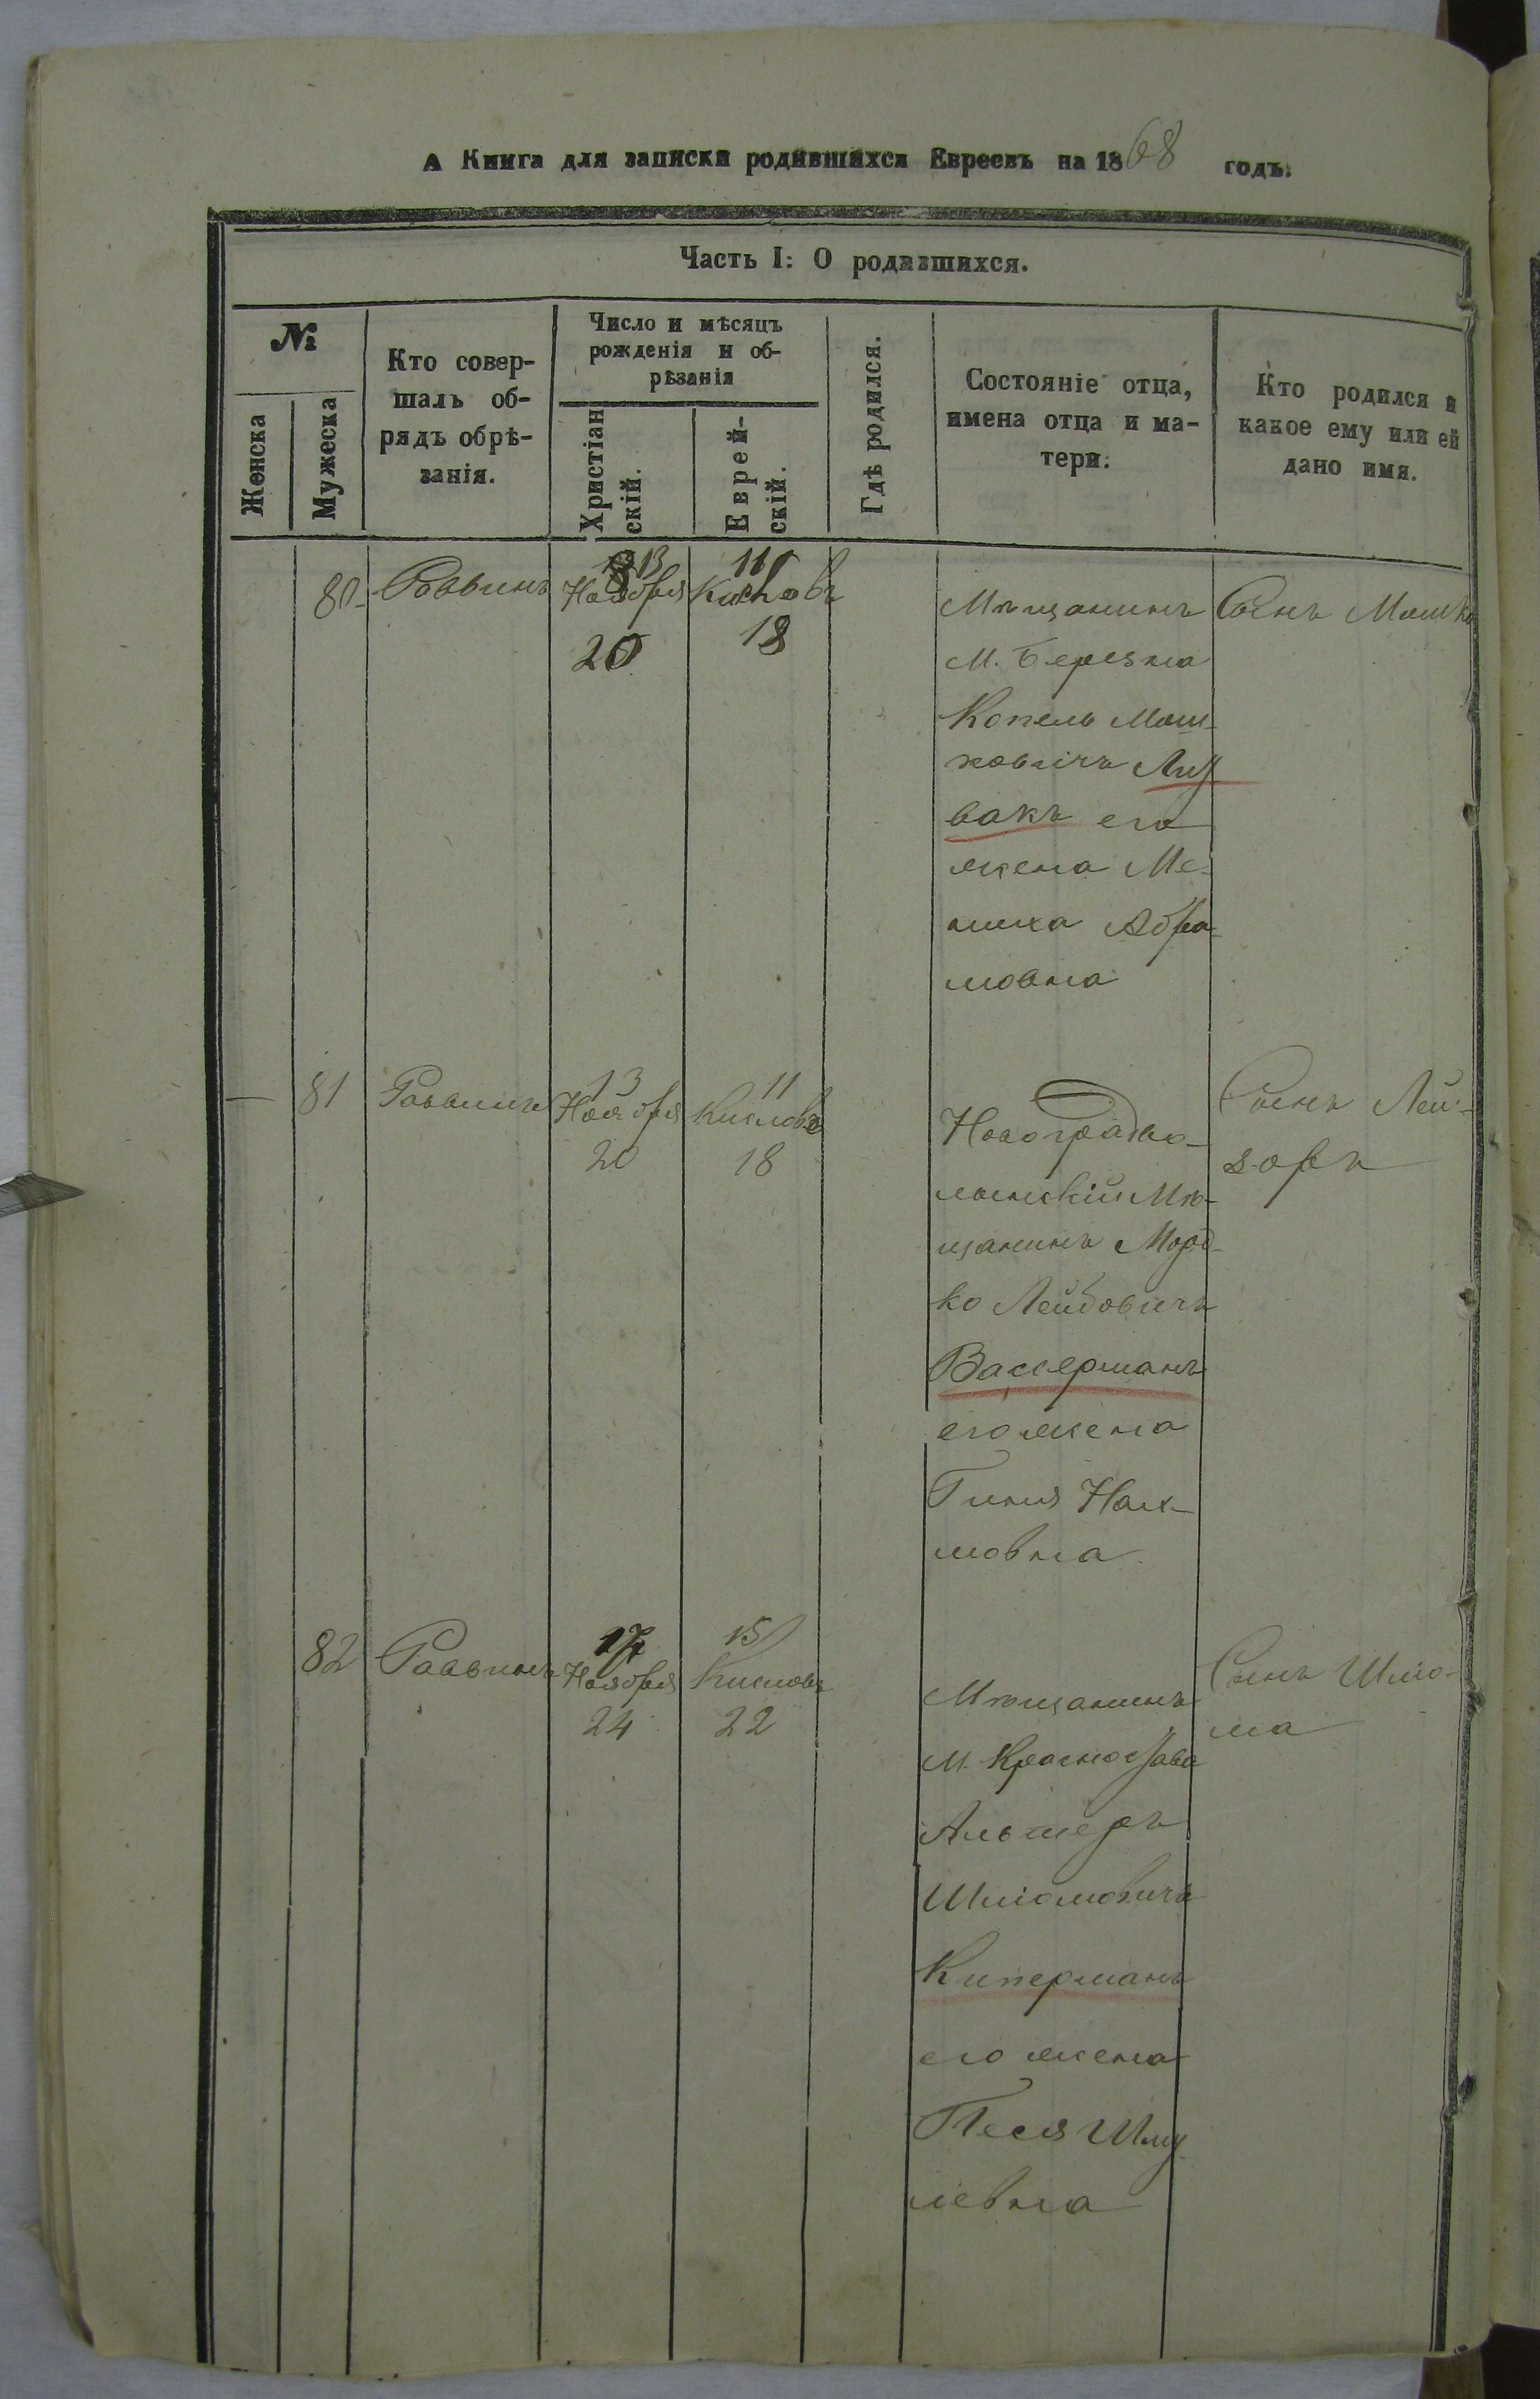 А Книга для записки родившихся Евреевъ на 1868 годъ.
Часть I: О родившихся.
№
Женска
Мужеска
Кто совер-
шалъ об-
рядъ обрѣ-
занія.
Число и мѣсяцъ
рожденія и об-
рѣзанія
Христіан
скій.
Еврей-
скій.
Гдѣ родился.
Состояніе отца,
имена отца и ма-
тери.
Кто родился и
какое ему или ей
дано имя.
80
Раввинъ
13
Ноября
20
11
18
Мѣщанинъ
М. Березна
Копель Мош-
ковичъ Лит
вакъ его
жена Ме-
ниха Абра-
мовна
Сынъ Мошко
81
Раввинъ
13
Ноября
20
11
Кислова
18
Новоградво-
лынскій Мѣ-
щанинъ Морд-
ко Лейбовичъ
Вассерманъ
его жена
Гиня Нах-
мовна
Сынъ Лей-
зоръ
82
Раввинъ
17
Ноября
24
15
Кисловъ
22
Мѣщанинъ
М. Красностава
Альтеръ
Шліомовичъ
Киперманъ
его жена
Песя Шму
левна
Сынъ Шліо-
ма